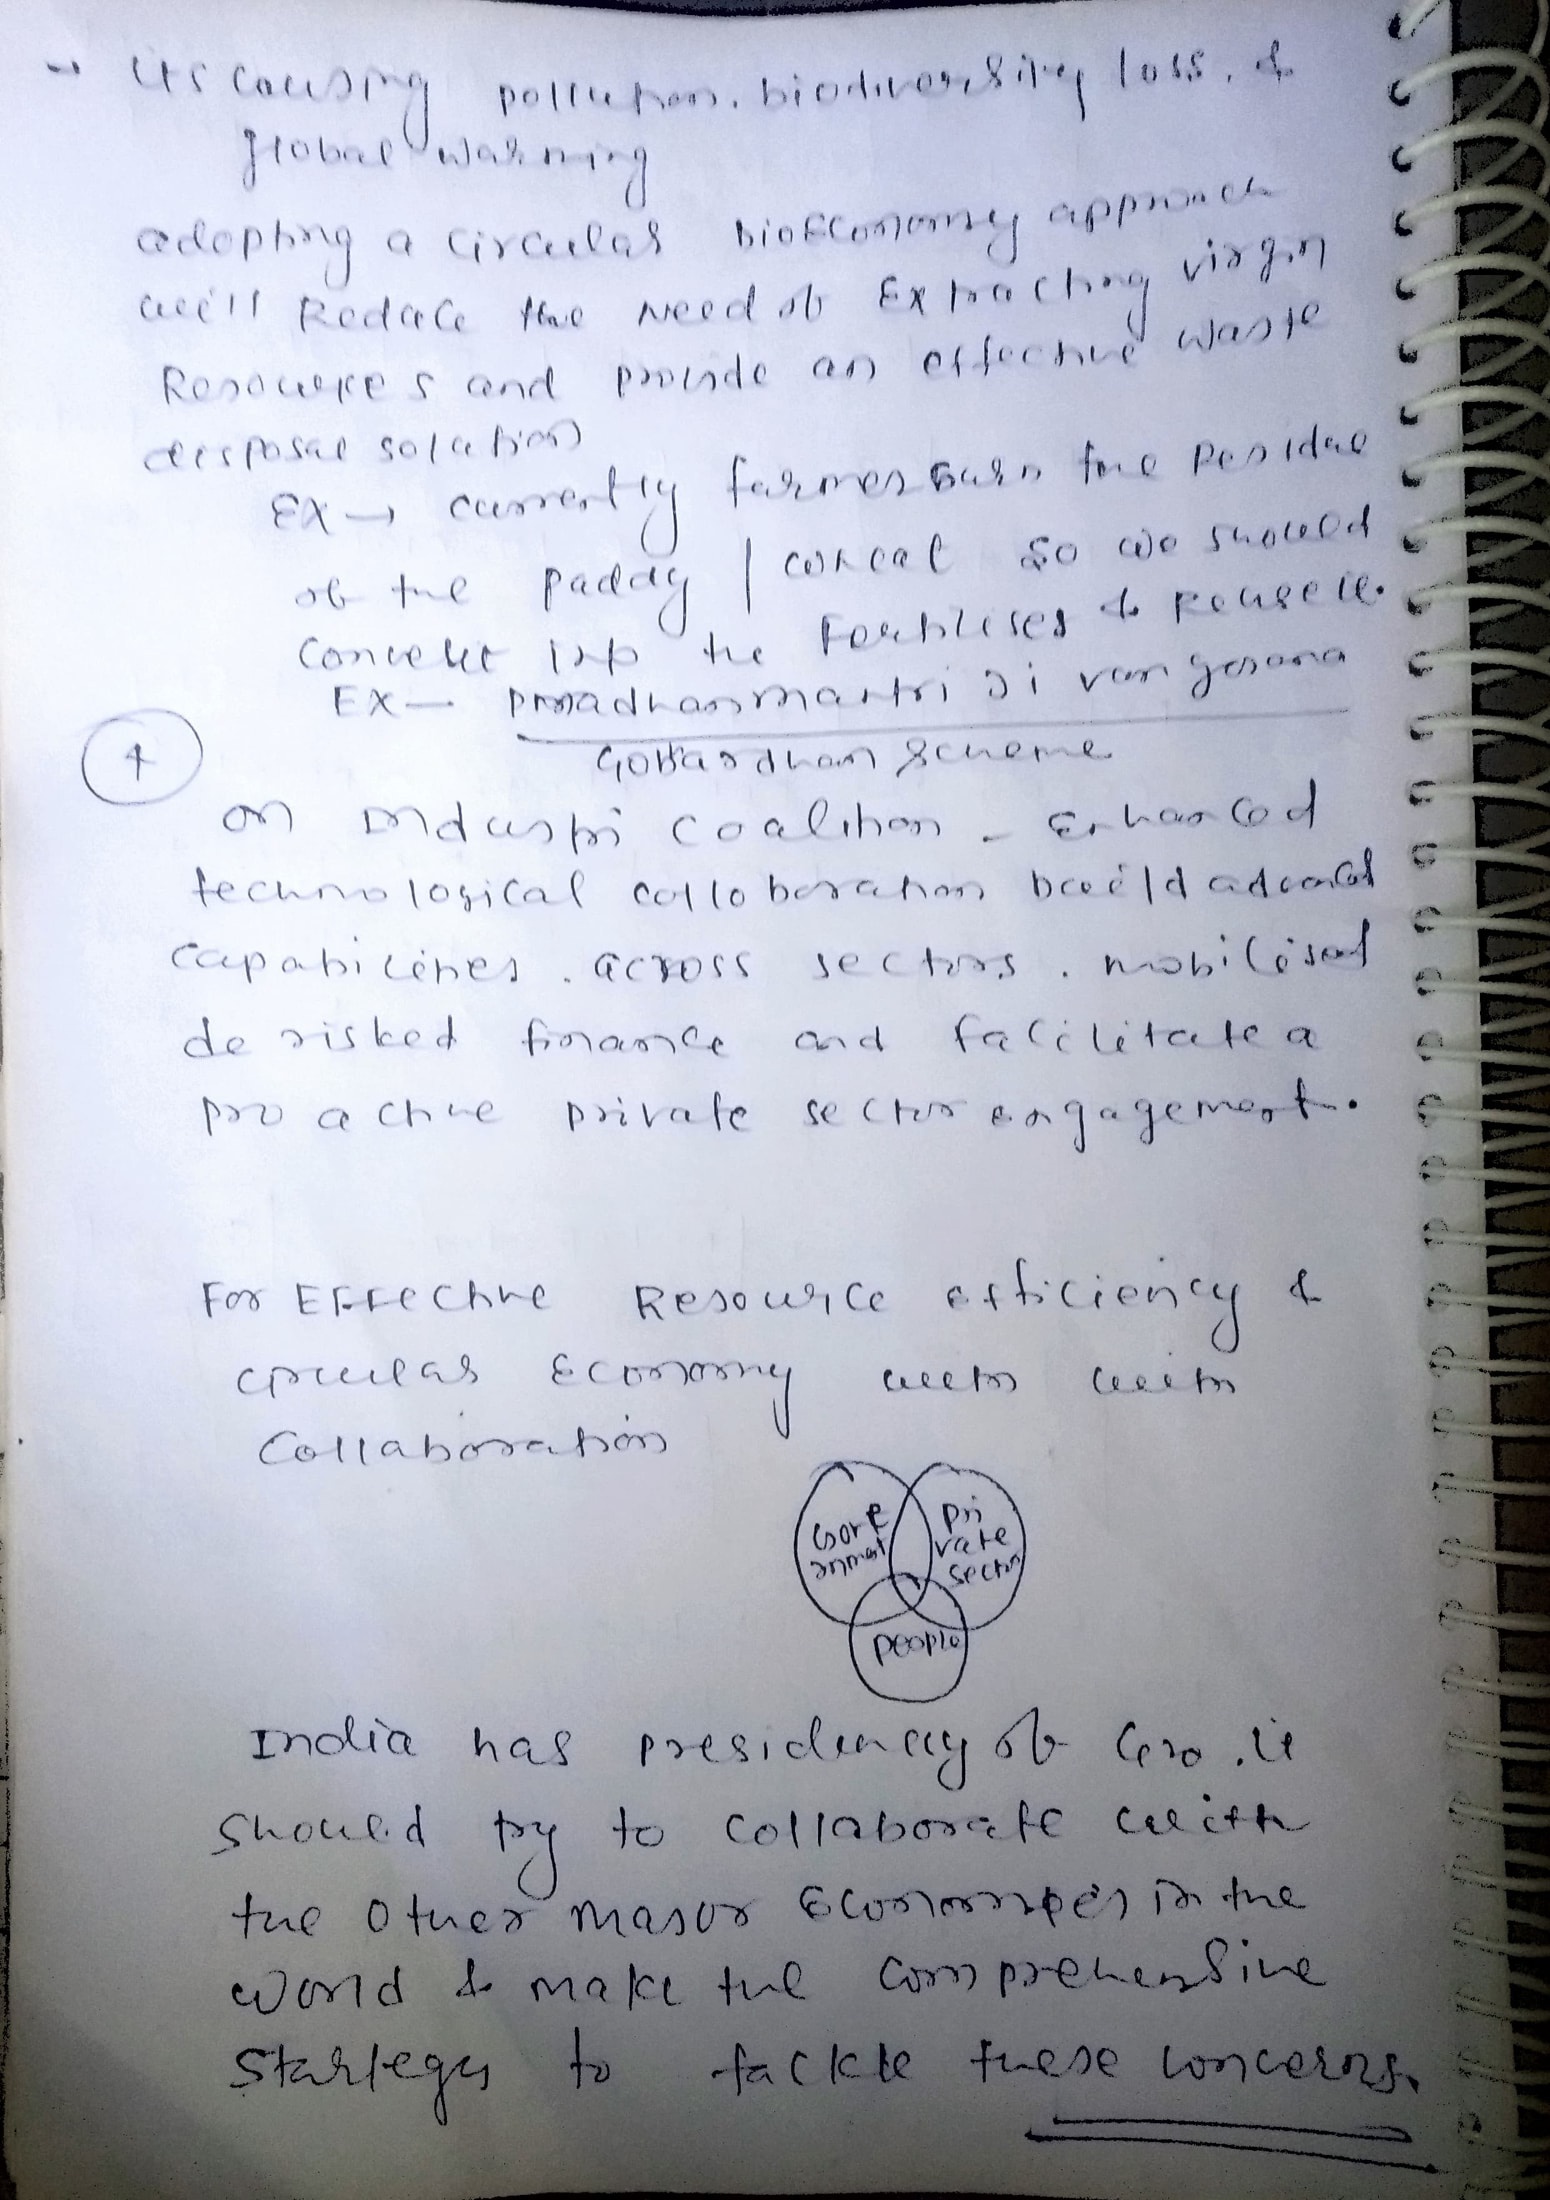 → its causing pollution, biodiversity loss, &
global warming
adopting a circular bioeconomy approach
will Reduce the need of Extracting virgin
Resources and provide an effective waste
disposal solution
EX → currently farmer burn the Residue
of the paddy / wheat so we should
convert into the Fertilisers & Reuse it.
EX — pradhanmantri Ji van yojana
Gobardhan scheme
4
on industri coalition - Enhanced
technological colloboration build advanced
capabilities. across sectors. mobilised
de risked finance and facilitate a
pro active private sector engagement.
For Effective Resource efficiency &
circular Economy with with
Collaboration
Gove
rnment
pri
vate
sector
people
India has presidency of G20. it
should try to collaborate with
the other major Economies in the
world & make the comprehensive
startegy to tackle these concerns.